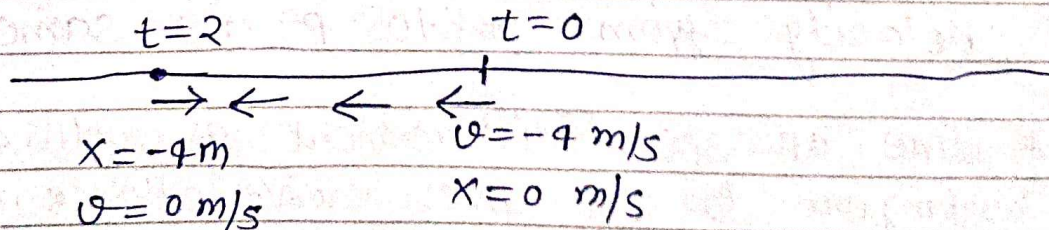 t=2 t=0
x=-4m v=-4 m/s
v=0 m/s x=0 m/s